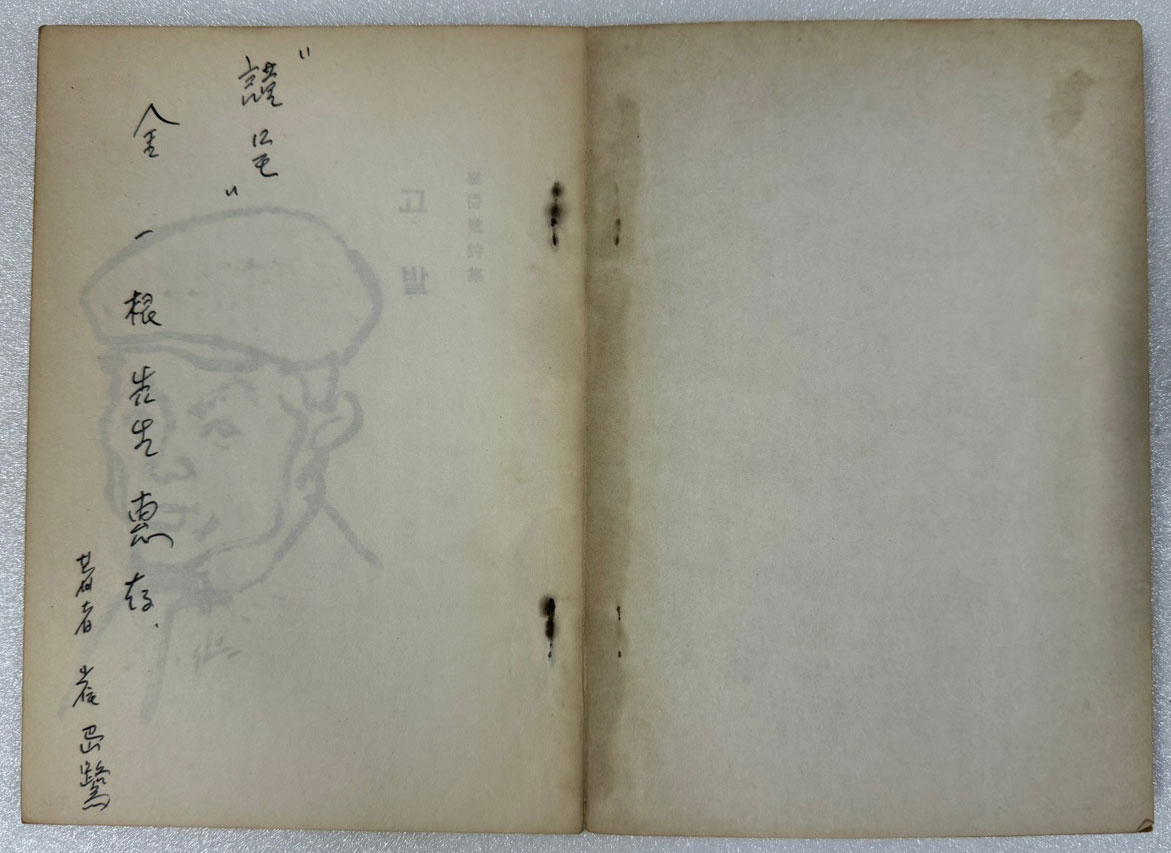 고발
"謹呈"
金一根 先生 惠存.
著者 崔